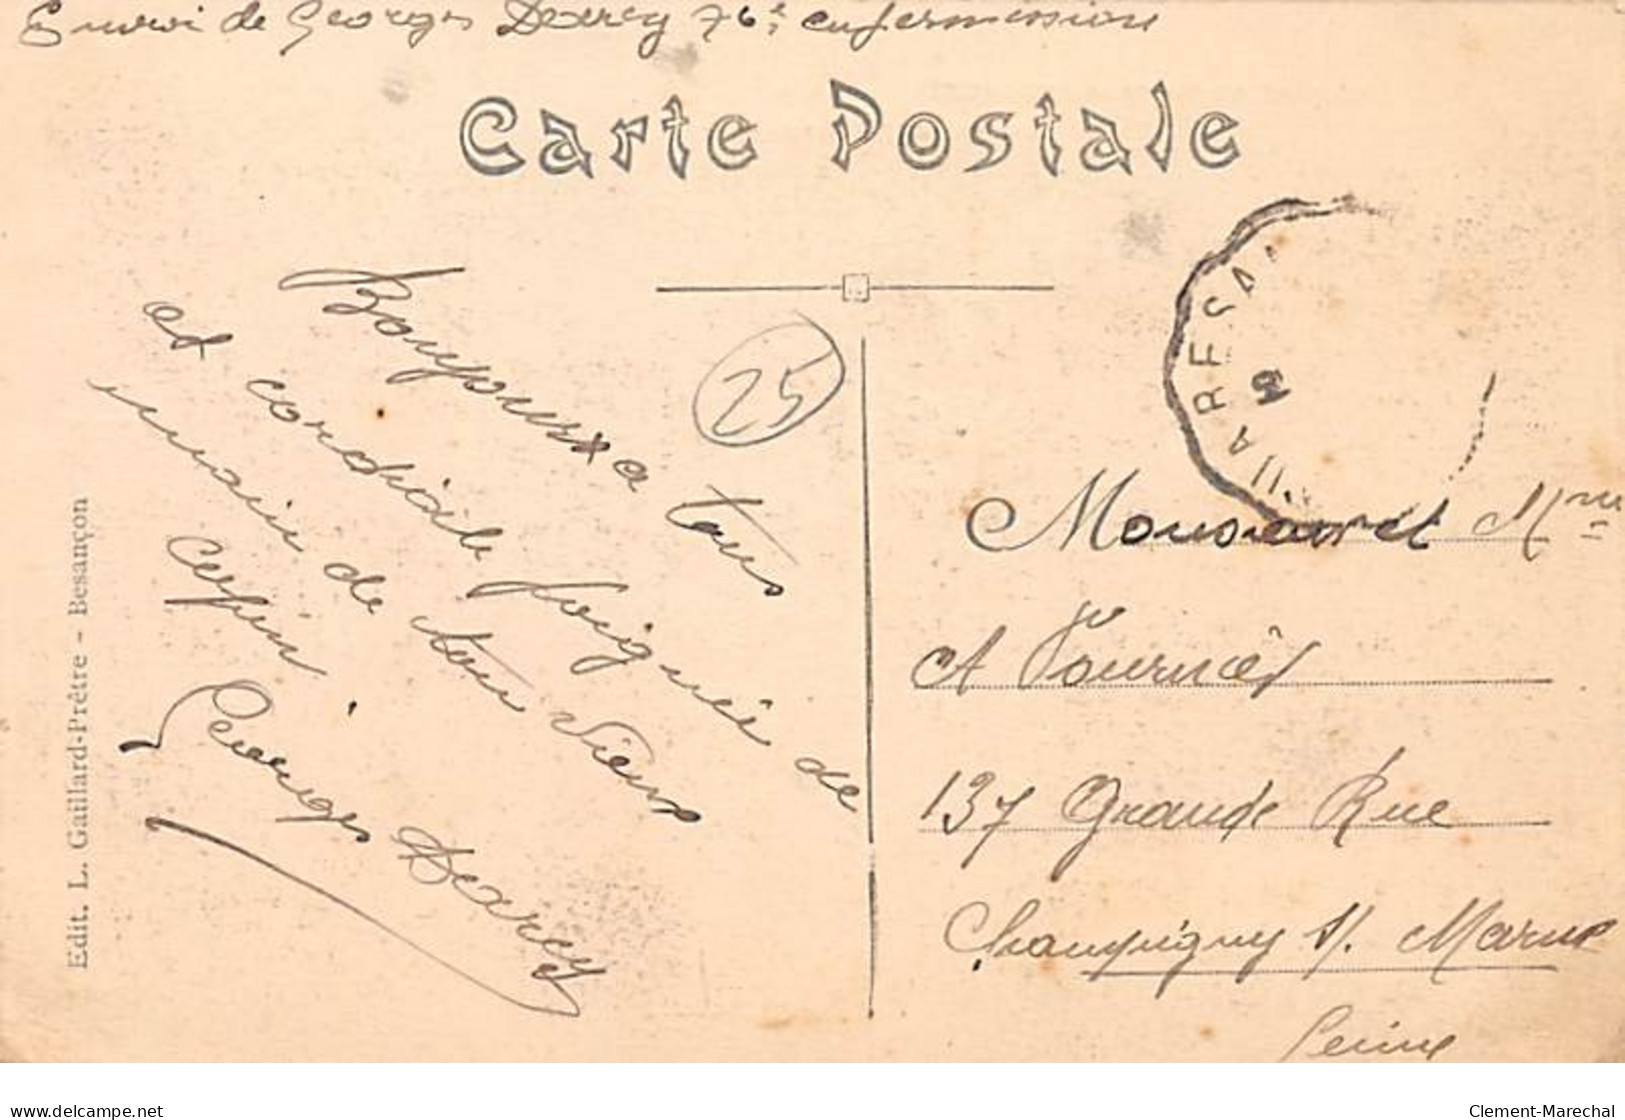 Envoi de Georges Dexrey 76e en permission
Carte Postale
25
Bonjour a tous
et cordiale poignée de
main de ton vieux
copin
Georges Dexrey
Edit. L. Gaillard-Prêtre - Besançon
A BESAN
Monsieur et Mme
A Fournier
137 Grande Rue
Champigny s/. Marne
Seine
delcampe.net
Clement-Marechal